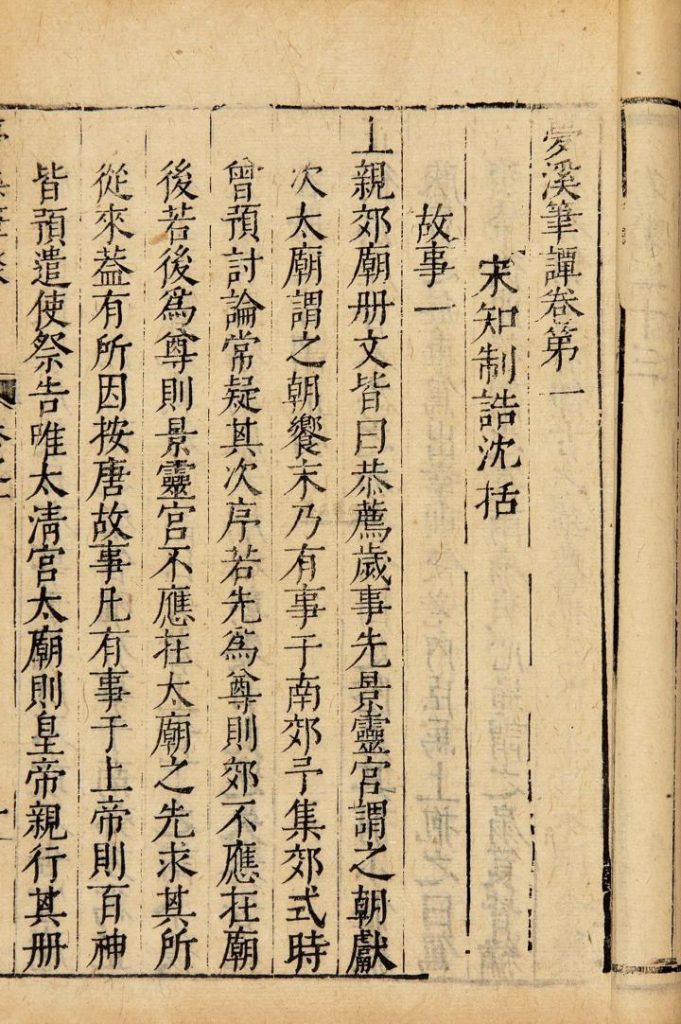 夢溪筆譚卷第一
宋知制誥沈括
故事一
上親郊廟册文皆曰恭薦歲事先景靈宮謂之朝獻
次太廟謂之朝饗末乃有事于南郊予集郊式時
曾預討論常疑其次序若先爲尊則郊不應在廟
後若後爲尊則景靈宮不應在太廟之先求其所
從來葢有所因按唐故事凡有事于上帝則百神
皆預遣使祭告唯太清宮太廟則皇帝親行其册